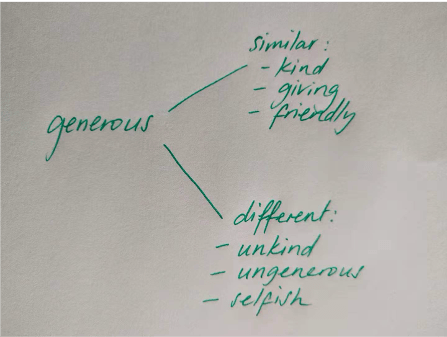 similar:
- kind
- giving
- friendly
generous
different:
- unkind
- ungenerous
- selfish